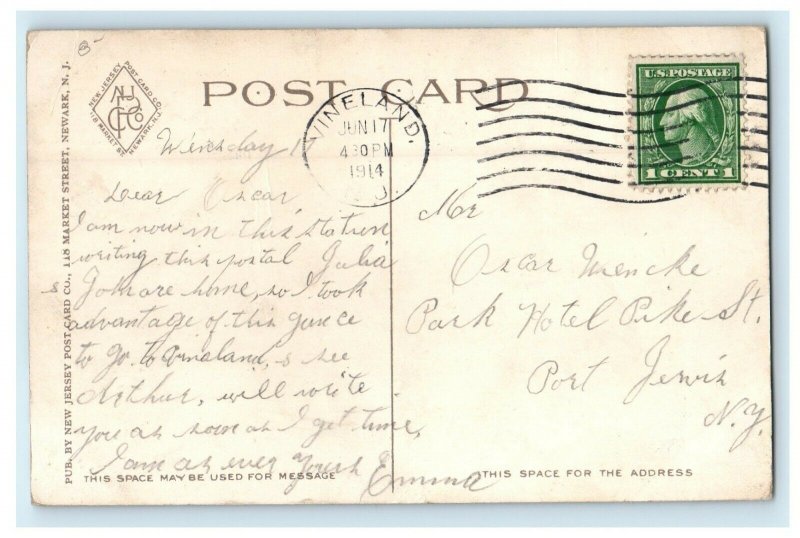 POST CARD
NEW JERSEY POST CARD CO.
118 MARKET ST. NEWARK, N.J.
PUB. BY NEW JERSEY POST CARD CO., 118 MARKET STREET, NEWARK, N. J.
VINELAND.
JUN 17
4 30 PM
1914
N.J.
U.S. POSTAGE
1 CENT 1
17
Dear Oscar,
I am now in this station
writing this postal Julia
s are home, so I took
advantage of this
to go to & see
Arthur, will write
you as soon as I get time,
I am as ever Yours Emma
THIS SPACE MAY BE USED FOR MESSAGE
Mr
Oscar Mencke
Park Hotel Pike St.
Port Jervis
N.Y.
THIS SPACE FOR THE ADDRESS